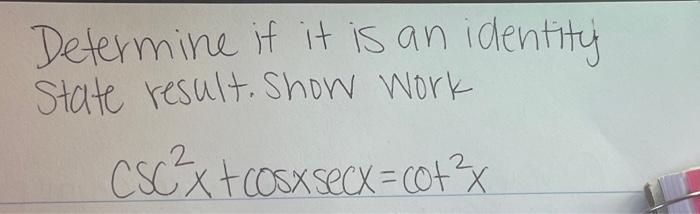 Determine if it is an identity
State result. Show Work
csc²x+cosxsecx=cot²x